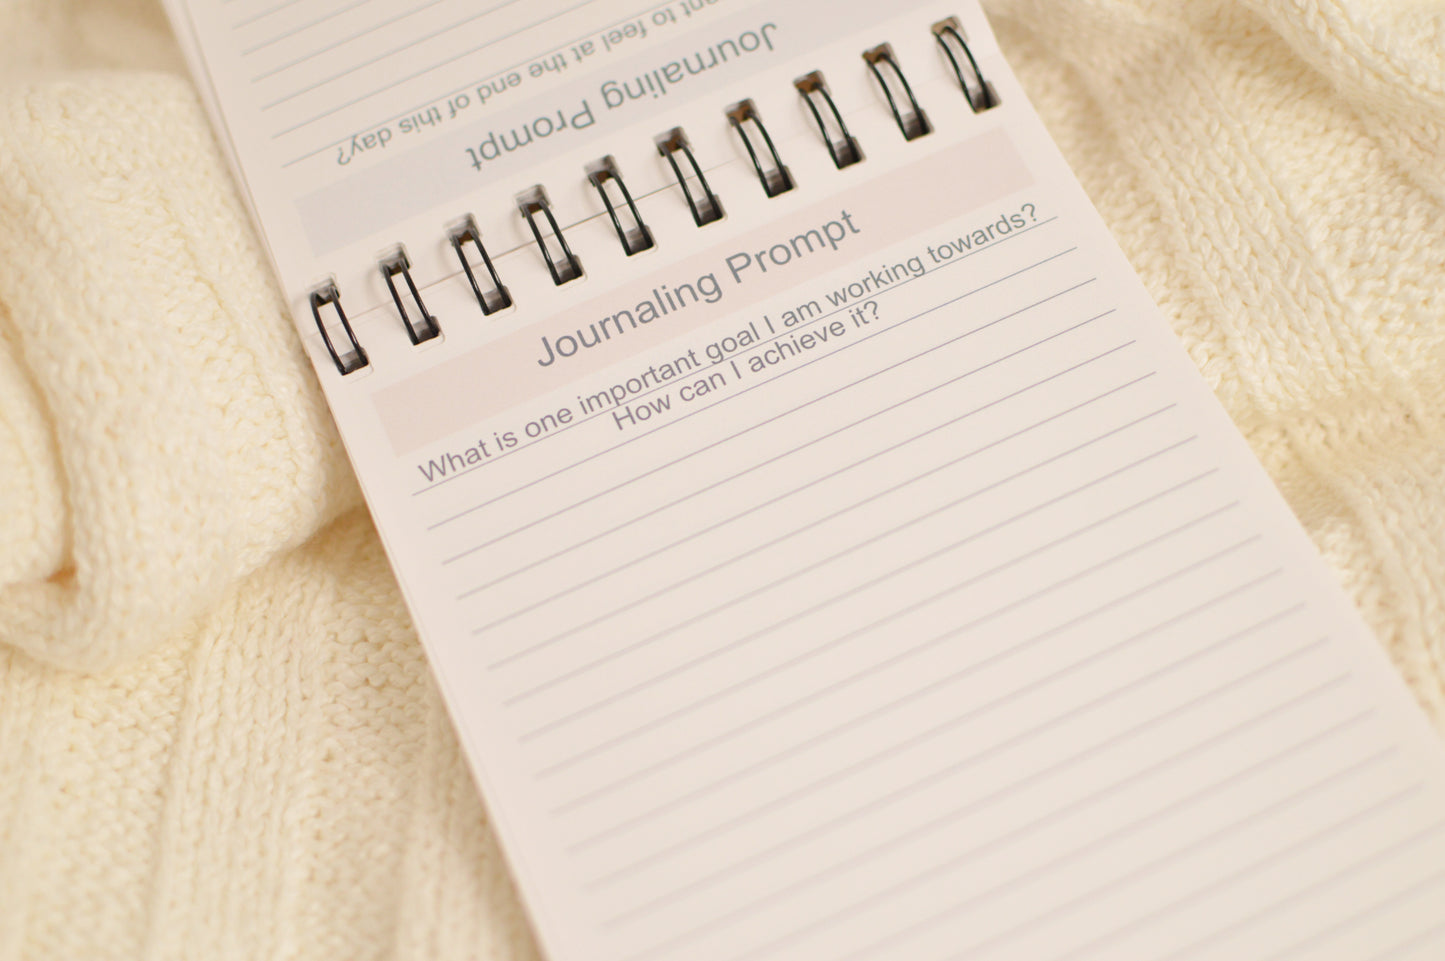 Journaling Prompt
to feel at the end of this day?
Journaling Prompt
What is one important goal I am working towards?
How can I achieve it?